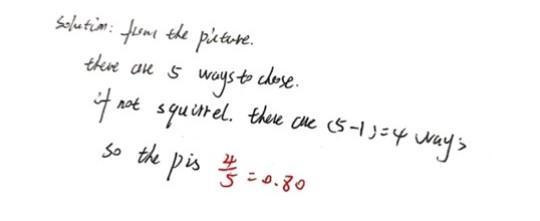 Solution: from the picture.
there are 5 ways to chose.
if not squirrel. there are (5-1)=4 ways
so the p is 4/5 = 0.80